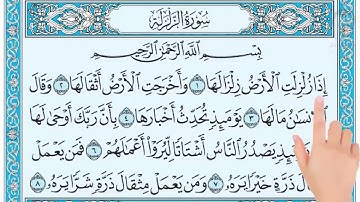 سُورَةُ الزَّلْزَلَةِ
بِسْمِ ٱللَّهِ ٱلرَّحْمَٰنِ ٱلرَّحِيمِ
إِذَا زُلْزِلَتِ ٱلْأَرْضُ زِلْزَالَهَا ١ وَأَخْرَجَتِ ٱلْأَرْضُ أَثْقَالَهَا ٢ وَقَالَ
ٱلْإِنسَٰنُ مَا لَهَا ٣ يَوْمَئِذٍ تُحَدِّثُ أَخْبَارَهَا ٤ بِأَنَّ رَبَّكَ أَوْحَىٰ لَهَا
يَصْدُرُ ٱلنَّاسُ أَشْتَاتًا لِّيُرَوْا۟ أَعْمَٰلَهُمْ ٦ فَمَن يَعْمَلْ
ذَرَّةٍ خَيْرًا يَرَهُۥ ٧ وَمَن يَعْمَلْ مِثْقَالَ ذَرَّةٍ شَرًّا يَرَهُۥ ٨